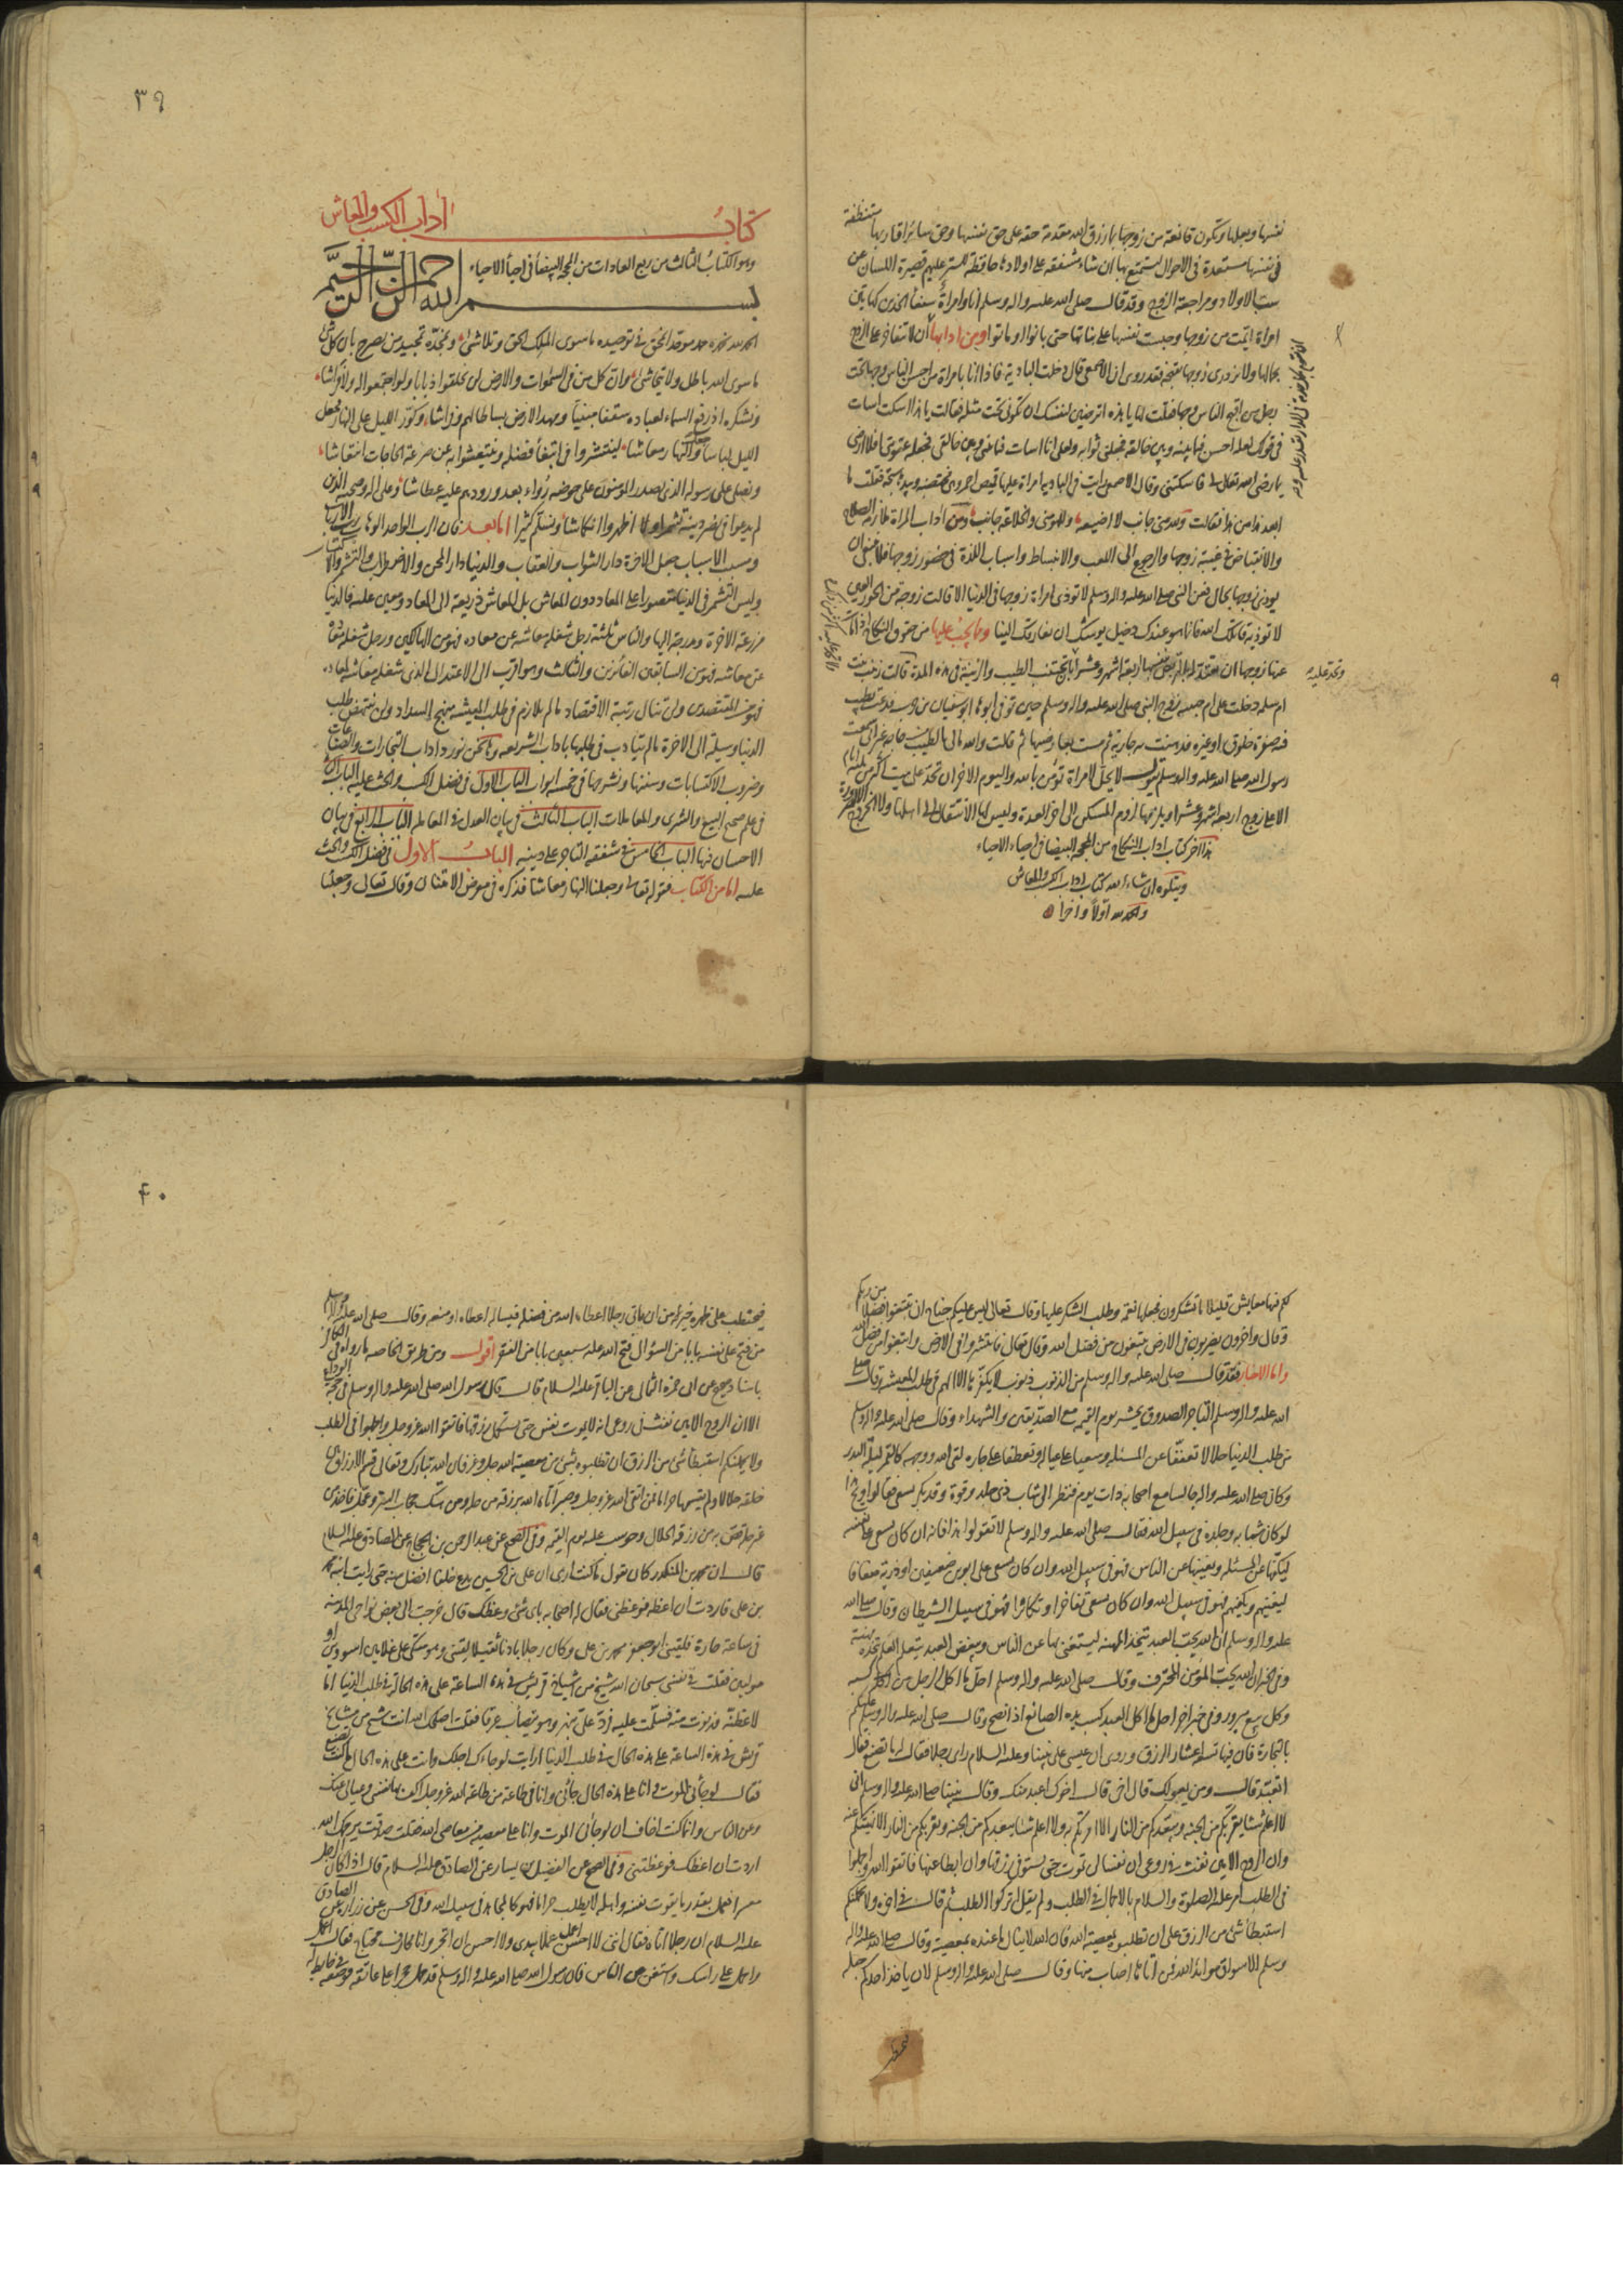 نفسها وبعلها وتكون قانعة من زوجها بما رزق الله مقدمة حقه على حق نفسها وحق سائر اقاربها متنظفة
في نفسها مستعدة في الاحوال ليستمتع بها ان شاء مشفقة على اولادها حافظة للستر عليهم قصيرة اللسان عن
سب الاولاد ومراجعة الزوج وقد قال صلى الله عليه واله وسلم انا وامراة سفعاء الخدين كهاتين
امراة ايمت من زوجها وحبست نفسها على بناتها حتى بانوا او ماتوا ومن ادابها ان لا تتفاخر على الزوج
بجمالها ولا تزدري زوجها لقبحه فقد روى ان الاصمعي قال دخلت البادية فاذا انا بامراة من احسن الناس وجها تحت
رجل من اقبح الناس وجها فقلت لها يا هذه اترضين لنفسك ان تكوني تحت مثله فقالت يا هذا اسكت اسات
في قولك لعله احسن فيما بينه وبين خالقه فجعلني ثوابه ولعلى انا اسات فيما بيني وبين خالقي فجعله عقوبتي افلا ارضى
بما رضى الله تعالى لي فاسكتتني وقال الاصمعي رايت في البادية امراة عليها قميص احمر وهي مختضبة وبيدها سبحة فقلت ما
ابعد هذا من هذا فقالت ولله مني جانب لا اضيعه وللهو مني والخلاعة جانب ومن اداب المراة ملازمة الصلاح
والانقباض في غيبة زوجها والرجوع الى اللعب والانبساط واسباب اللذة في حضور زوجها فلا ينبغي ان
يوذى زوجها بحال فعن النبي صلى الله عليه واله وسلم لا توذى امراة زوجها في الدنيا الا قالت زوجته من الحور العين
لا توذيه قاتلك الله فانما هو عندك دخيل يوشك ان يفارقك الينا ومما يجب عليها من حقوق النكاح اذا مات
عنها زوجها ان لا تحد اربعة اشهر وعشرا تجتنب الطيب والزينة في هذه المدة قالت زينب بنت
وتحد عليه
ام سلمه دخلت على ام حبيبه زوج النبي صلى الله عليه واله وسلم حين توفى ابوها ابو سفيان بن حرب فدعت بطيب
فيه صفرة خلوق او غيره فدهنت به جارية ثم مست بعارضيها ثم قالت والله مالي بالطيب من حاجة غير اني سمعت
رسول الله صلى الله عليه واله وسلم يقول لا يحل لامراة تؤمن بالله واليوم الاخر ان تحد على ميت اكثر من ثلثة ايام
الا على زوج اربعة اشهر وعشرا ويلزمها لزوم المسكن الى اخر العدة وليس لها الانتقال الى اهلها ولا الخروج الا لضرورة
هذا آخر كتاب اداب النكاح من المحجة البيضا في احياء الاحياء
ويتلوه ان شاء الله كتاب اداب الكسب والمعاش
والحمد لله اولا واخرا
٣٩
كتاب اداب الكسب والمعاش
وهو الكتاب الثالث من ربع العادات من المحجة البيضا في احيا الاحياء
بسم الله الرحمن الرحيم
الحمد لله نحمده حمد موحد انمحق في توحيده ما سوى الملك الحق وتلاشى ونمجده تمجيد من يصرح بان كل شئ
ما سوى الله باطل ولا يتحاشى وان كل من في السموات والارض لن يخلقوا ذبابا ولو اجتمعوا له ولا فراشا
ونشكره اذ رفع السماء لعباده سقفا مبنيا ومهد الارض بساطا لهم وفراشا وكور الليل على النهار فجعل
الليل لباسا والنهار معاشا لينتشروا في ابتغاء فضله وينتعشوا به عن ضراعة الحاجات انتعاشا
ونصلى على رسوله الذي يصدر المومنون على حوضه رواء بعد ورودهم عليه عطاشا وعلى اله وصحبه الذين
لم يدعوا في نصر دينه تشمرا وانكماشا وسلم كثيرا اما بعد فان رب الارباب
ومسبب الاسباب جعل الاخرة دار الثواب والعقاب والدنيا دار المحن والاضطراب والتشمر والاكتساب
وليس التشمر في الدنيا مقصورا على المعاد دون المعاش بل المعاش ذريعة الى المعاد ومعين عليه فالدنيا
مزرعة الاخرة ومدرجة اليها والناس ثلثة رجل شغله معاشه عن معاده فهو من الهالكين ورجل شغله معاده
عن معاشه فهو من السابقين الفائزين والثالث وهو اقرب الى الاعتدال الذي شغله معاشه لمعاده
فهو من المقتصدين ولن تنال رتبة الاقتصاد ما لم يلازم في طلب المعيشة منهج السداد ولن ينتهض طلب
الدنيا وسيلة الى الاخرة ما لم يتادب في طلبها باداب الشريعة وها نحن نورد اداب التجارات والصناعات
وضروب الاكتسابات وسننها ونشرحها في خمسة ابواب الباب الاول في فضل الكسب والحث عليه الباب الثاني
في علم صحيح البيع والشرى والمعاملات الباب الثالث في بيان العدل في المعاملة الباب الرابع في بيان
الاحسان فيها الباب الخامس في شفقة التاجر على دينه الباب الاول في فضل الكسب والحث
عليه اما من الكتاب فقوله تعالى وجعلنا النهار معاشا فذكره في معرض الامتنان وقال تعالى وجعلنا
لكم فيها معايش قليلا ما تشكرون فجعلها نعمة وطلب الشكر عليها وقال تعالى ليس عليكم جناح ان تبتغوا فضلا من ربكم
وقال واخرون يضربون في الارض يبتغون من فضل الله وقال تعالى فانتشروا في الارض وابتغوا من فضل الله
واما الاخبار فقد قال صلى الله عليه واله وسلم من الذنوب ذنوب لا يكفرها الا الهم في طلب المعيشة وقال صلى
الله عليه واله وسلم التاجر الصدوق يحشر يوم القيمة مع الصديقين والشهداء وقال صلى الله عليه واله وسلم
من طلب الدنيا حلالا تعففا عن المسئلة وسعيا على عياله وتعطفا على جاره لقى الله ووجهه كالقمر ليلة البدر
وكان صلى الله عليه واله جالسا مع اصحابه ذات يوم فنظر الى شاب ذي جلد وقوة وقد بكر يسعى فقالوا ويح هذا
لو كان شبابه وجلده في سبيل الله فقال صلى الله عليه واله وسلم لا تقولوا هذا فانه ان كان يسعى على نفسه
ليكفها عن المسئلة ويغنيها عن الناس فهو في سبيل الله وان كان يسعى على ابوين ضعيفين او ذرية ضعافا
ليغنيهم ويكفيهم فهو في سبيل الله وان كان يسعى تفاخرا وتكاثرا فهو في سبيل الشيطان وقال صلى الله
عليه واله وسلم ان الله يحب العبد يتخذ المهنة ليستغنى بها عن الناس ويبغض العبد يتعلم العلم يتخذه مهنة
وفي الخبر ان الله يحب المؤمن المحترف وقال صلى الله عليه واله وسلم احل ما اكل الرجل من كسبه
وكل بيع مبرور وفي خبر اخر احل ما اكل العبد كسب يد الصانع اذا نصح وقال صلى الله عليه واله وسلم عليكم
بالتجارة فان فيها تسعة اعشار الرزق وروى ان عيسى على نبينا وعليه السلام راى رجلا فقال له ما تصنع فقال
اتعبد قال ومن يعولك قال اخي قال اخوك اعبد منك وقال نبينا صلى الله عليه واله وسلم اني
لا اعلم شيئا يقربكم من الجنة ويبعدكم من النار الا امرتكم به ولا اعلم شيئا يبعدكم من الجنة ويقربكم من النار الا نهيتكم عنه
وان الروح الامين نفث في روعى ان نفسا لن تموت حتى تستوفى رزقها وان ابطا عنها فاتقوا الله واجملوا
في الطلب امر عليه الصلوة والسلام بالاجمال في الطلب ولم يقل اتركوا الطلب ثم قال في اخره ولا يحملنكم
استبطاء شئ من الرزق على ان تطلبوه بمعصية الله فان الله لا ينال ما عنده بمعصية وقال صلى الله عليه واله
وسلم الاسواق موائد الله فمن اتاها اصاب منها وقال صلى الله عليه واله وسلم لان ياخذ احدكم حبله
٤٠
فيحتطب على ظهره خير من ان ياتي رجلا اعطاه الله من فضله فيساله اعطاه او منعه وقال صلى الله عليه واله وسلم
من فتح على نفسه بابا من السؤال فتح الله عليه سبعين بابا من الفقر اقول ومن طريق الخاصه ما رواه في الكافي
باسناد صحيح عن ابي حمزة الثمالي عن الباقر عليه السلام قال قال رسول الله صلى الله عليه واله وسلم في حجة الوداع
الا ان الروح الامين نفث في روعى انه لا يموت نفس حتى يستكمل رزقها فاتقوا الله عز وجل واجملوا في الطلب
ولا يحملنكم استبطاء شئ من الرزق ان تطلبوه بشئ من معصية الله جل وعز فان الله تبارك وتعالى قسم الارزاق بين
خلقه حلالا ولم يقسمها حراما فمن اتقى الله عز وجل وصبر اتاه الله برزقه من حله ومن هتك حجاب الستر وعجل فاخذه من
غير حله قص به من رزقه الحلال وحوسب عليه يوم القيمة وفي الصحيح عن عبد الرحمن بن الحجاج عن الصادق عليه السلام
قال ان محمد بن المنكدر كان يقول ما كنت ارى ان علي بن الحسين يدع خلفا افضل منه حتى رايت ابنه محمد
بن علي فاردت ان اعظه فوعظني فقال له اصحابه باي شئ وعظك قال خرجت الى بعض نواحي المدينة
في ساعة حارة فلقيني ابو جعفر محمد بن علي وكان رجلا بادنا ثقيلا وهو متكئ على غلامين اسودين او
موليين فقلت في نفسي سبحان الله شيخ من اشياخ قريش في هذه الساعة على هذه الحالة في طلب الدنيا اما
لاعظنه فدنوت منه فسلمت عليه فرد علي بنهر وهو يتصاب عرقا فقلت اصلحك الله انت شيخ من مشايخ
قريش في هذه الساعة على هذه الحال في طلب الدنيا ارايت لو جاءك اجلك وانت على هذه الحال ما كنت تصنع
فقال لو جاءني الموت وانا على هذه الحال جائني وانا في طاعة من طاعة الله عز وجل اكف بها نفسي وعيالي عنك
وعن الناس وانما كنت اخاف ان لو جاءني الموت وانا على معصية من معاصي الله فقلت صدقت يرحمك الله
اردت ان اعظك فوعظتني وفي الصحيح عن الفضيل بن يسار عن الصادق عليه السلام قال اذا كان الرجل
معسرا فيعمل بقدر ما يقوت نفسه واهله لا يطلب حراما فهو كالمجاهد في سبيل الله وفي الحسن عن زرارة عن الصادق
عليه السلام ان رجلا اتاه فقال اني لا احسن ان اعمل عملا بيدي ولا احسن ان اتجر وانا محارف محتاج فقال اعمل
واحمل على راسك واستغن عن الناس فان رسول الله صلى الله عليه واله وسلم قد حمل حجرا على عاتقه فوضعه في حايط له